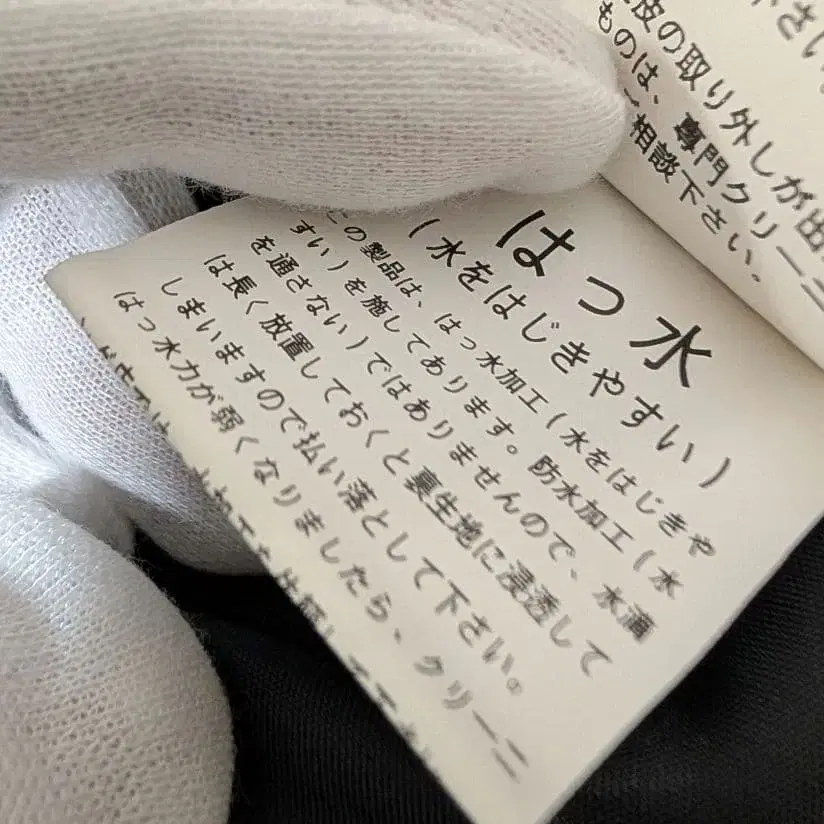 下さい。
皮の取り外しが出
ものは、専門クリーニ
ご相談下さい。
はっ水
(水をはじきやすい)
この製品は、はっ水加工(水をはじきや
すい)を施してあります。防水加工(水
を通さない)ではありませんので、水滴
は長く放置しておくと裏生地に浸透して
しまいますので払い落として下さい。
はっ水力が弱くなりましたら、クリーニ